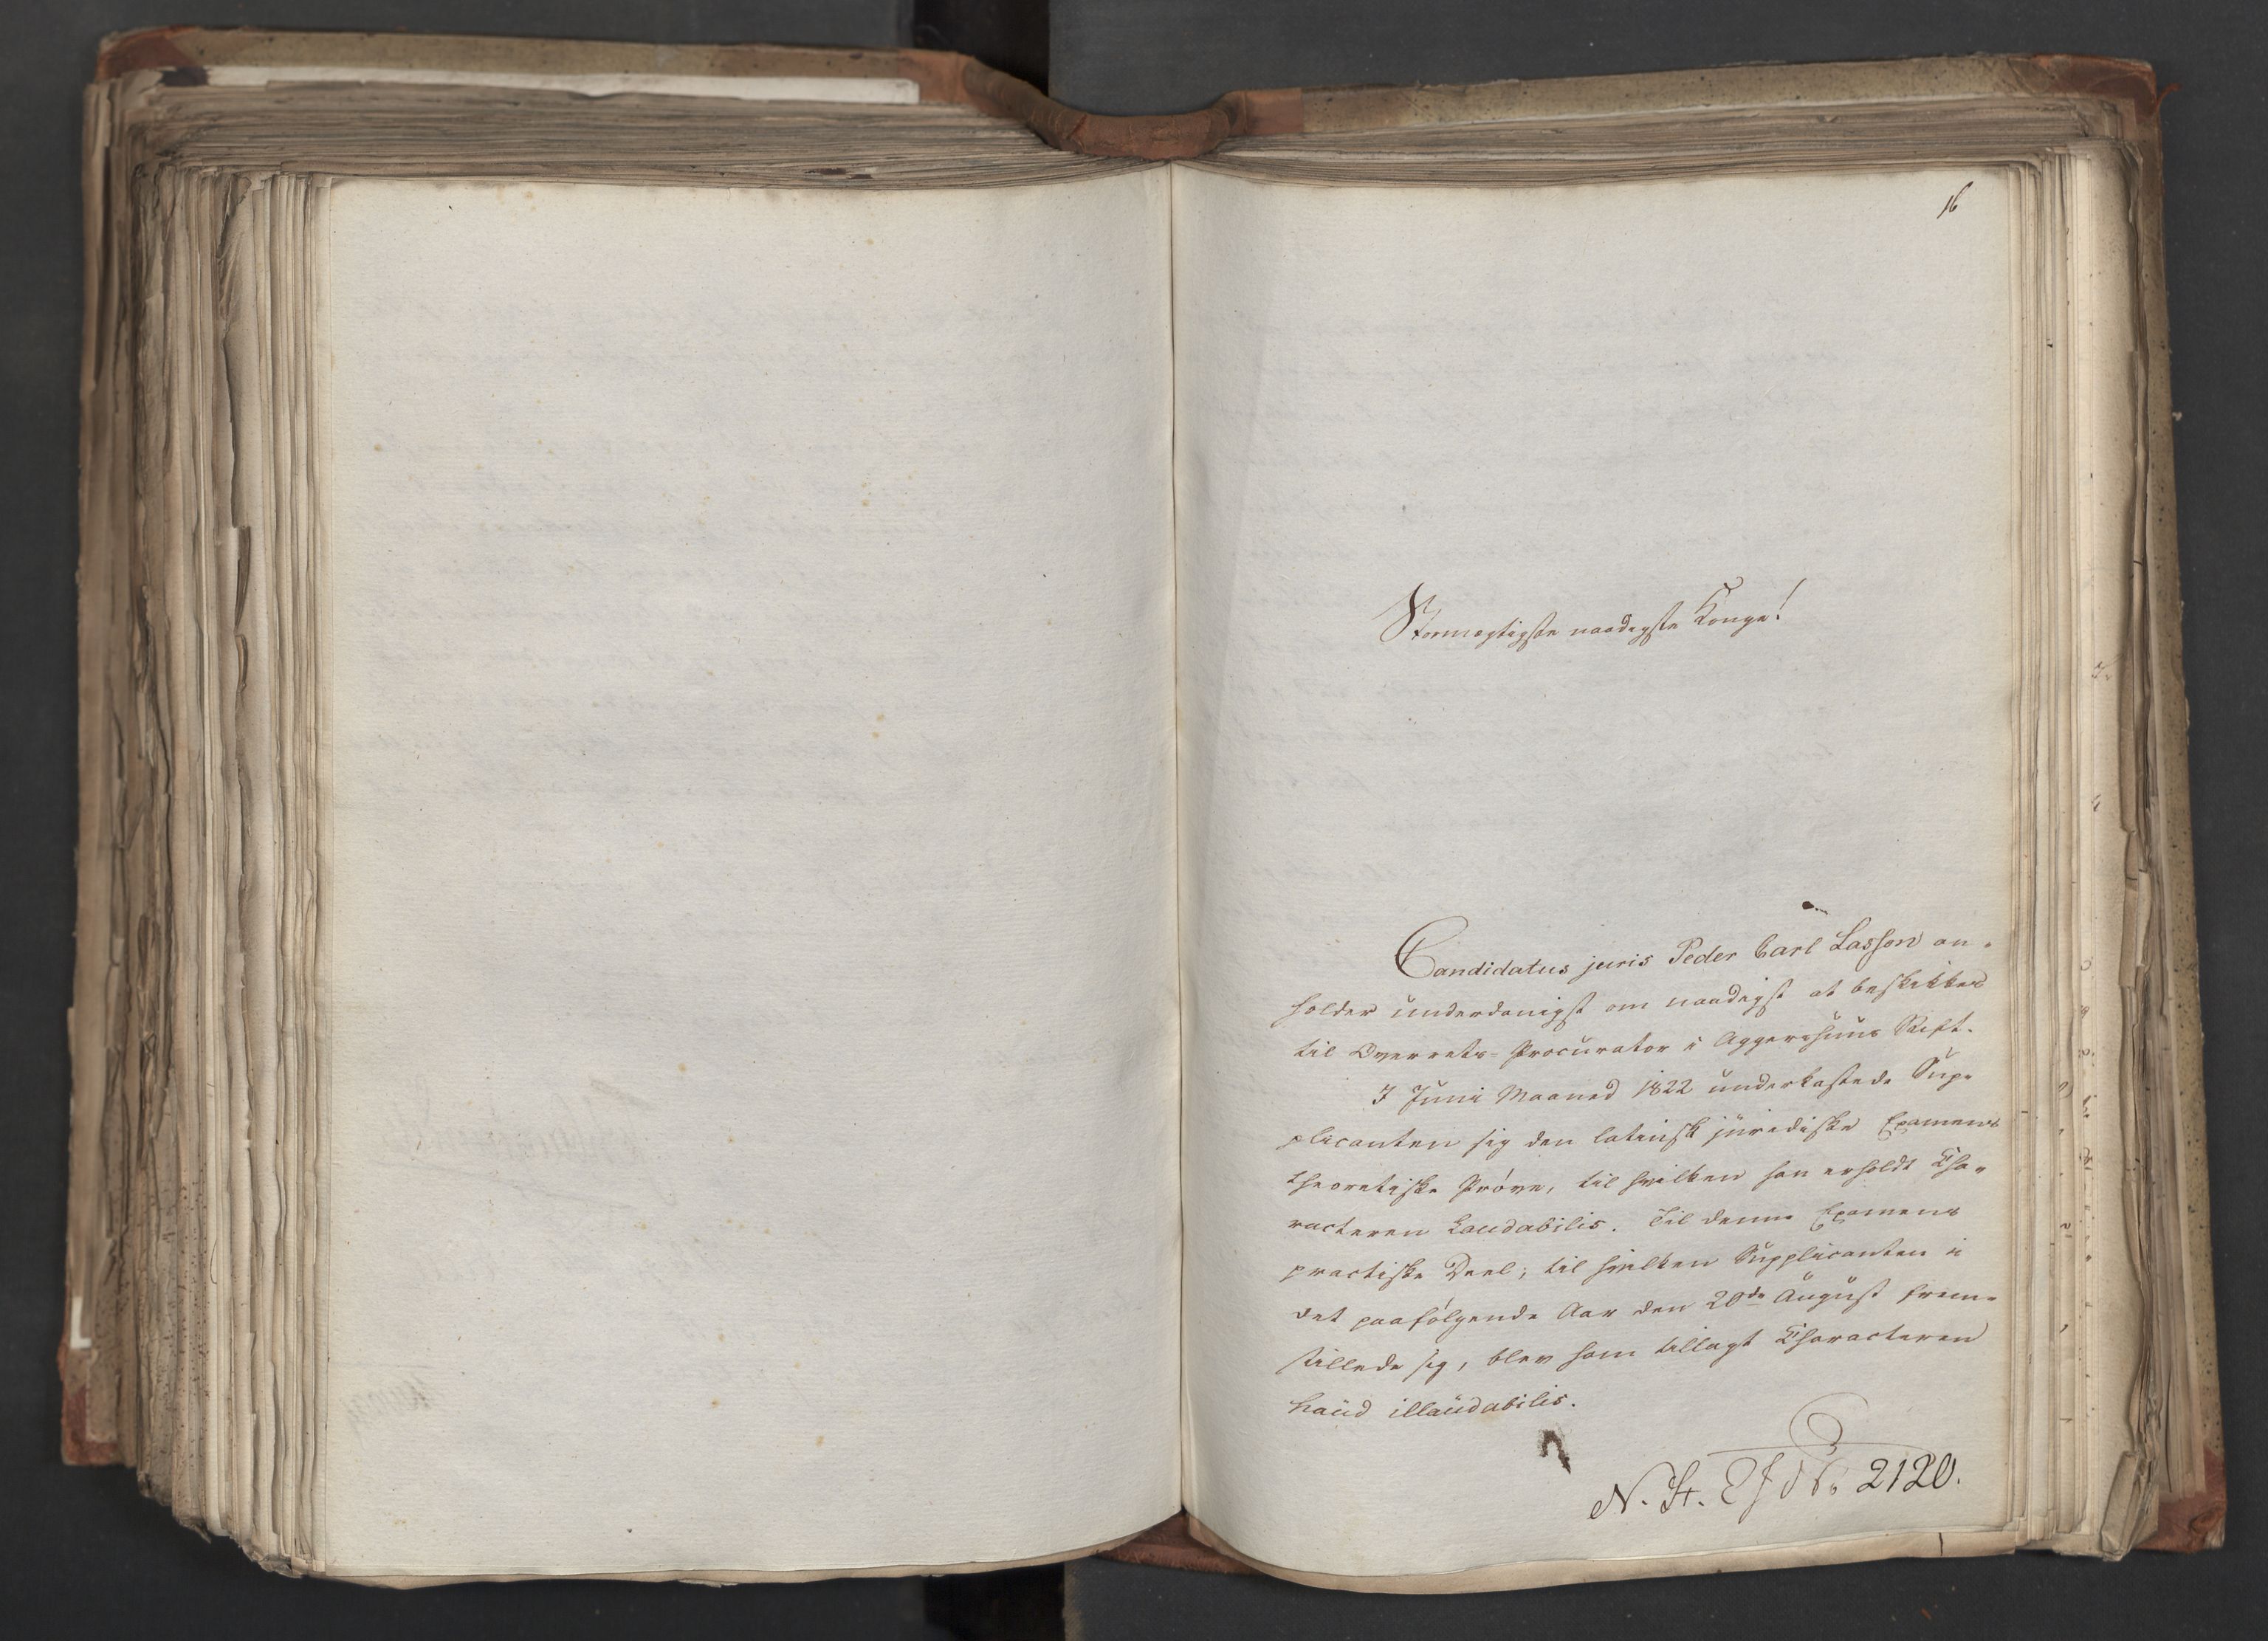 16
Stormægtigste naadigste Konge!
Candidatus juris Peder Carl Lasson an-
holder underdanigst om naadigst at beskikkes
til Overrets-Procurator i Aggershuus Stift.
I Juni Maaned 1822 underkastede Sup-
plicanten sig den latinsk juridiske Examens
theoretiske Prøve, til hvilken han erholdt Cha-
racteren Laudabilis. Til denne Examens
practiske Deel, til hvilken Supplicanten i
det paafølgende Aar den 20de August frem-
stillede sig, blev ham tillagt Characteren
haud illaudabilis.
N. St. No 2120.